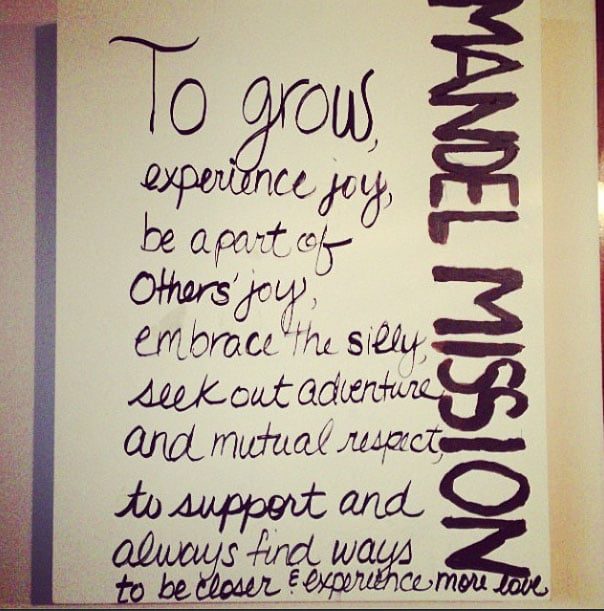 To grow,
experience joy,
be apart of
Others' joy,
embrace the silly,
seek out adventure
and mutual respect,
to support and
always find ways
to be closer & experience more love
MANDEL MISSION